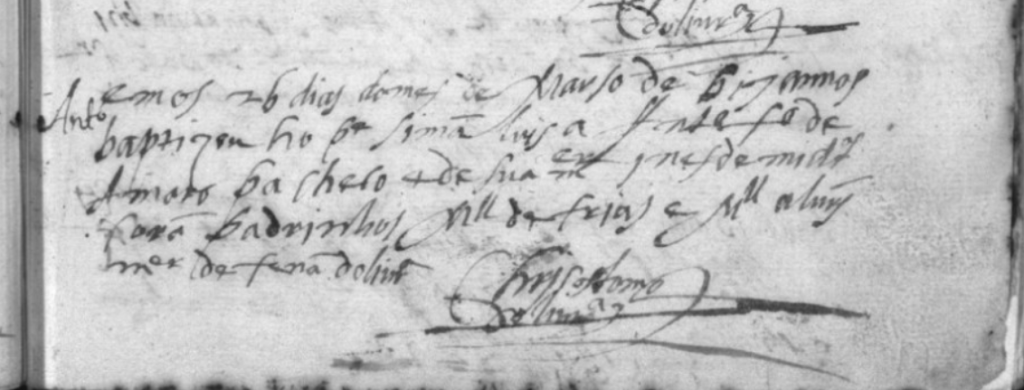 dolivrª
Antº
emos 26 dias do mes de Marso de
baptizou ho pe simã luis a Antº fº de
Amaro pacheco e de sua mer ines de
forã padrinhos Mll de frias e Mll alvrz
mer de fernã dolivrª
Chrisostomo
dolivrª